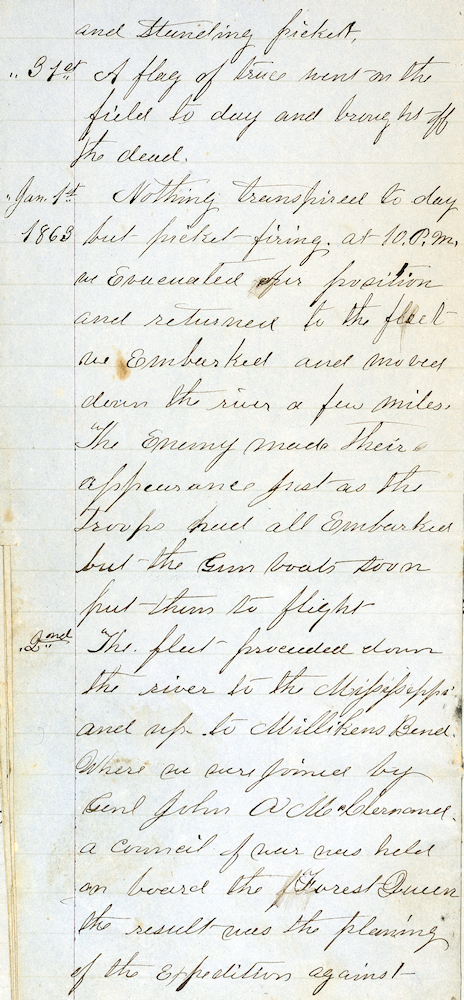 and Standing picket,
" 31st A flag of truce went on the
field to day and brought off
the dead.
" Jan. 1st Nothing transpired to day
1863 but picket firing. at 10. P. M.
we Evacuated our position
and returned to the fleet
we Embarked and moved
down the river a few miles.
The Enemy made their
appearance just as the
Troops had all Embarked
but the Gun boats soon
put them to flight
" 2nd The fleet proceeded down
the river to the Mississippi
and up to Millikens Bend.
Where we were joined by
Genl John A McClernand.
a council of war was held
on board the Forest Queen
the result was the planing
of the Expedition against